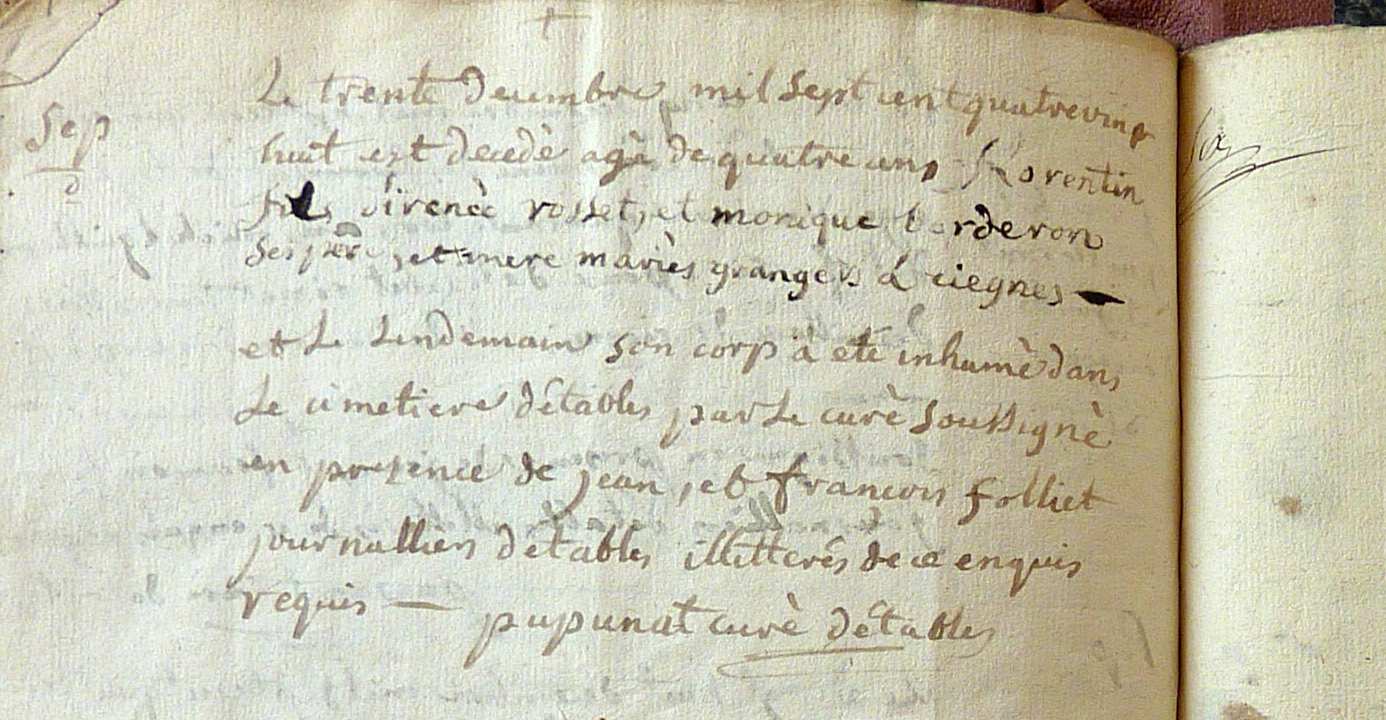 Sep
Le trente decembre mil sept cent quatrevingt
huit est decedè agè de quatre ans florentin
fils d'irenèe rosset, et monique borderon
ses pere, et mere mariès grangers à ciegnes —
et Le Lendemain son corp à etè inhumè dans
Le cimetiere d'étables par Le curè soussignè
en presence de jean, et francois folliet
journalliers d'etables illitterés de ce enquis
requis — pupunat curè d'étables